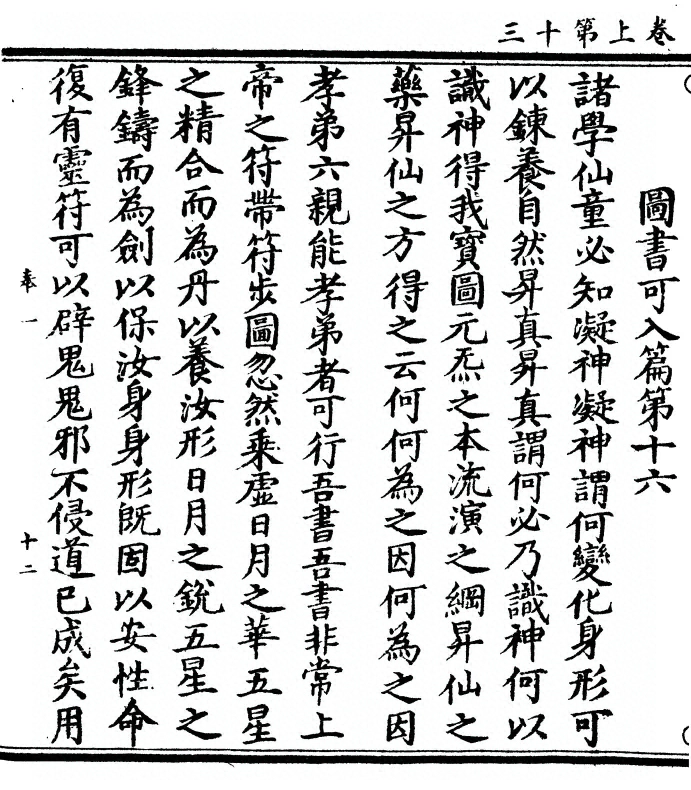 三十第上卷
圖書可入篇第十六
諸學仙童必知凝神凝神謂何變化身形可
以鍊養自然昇真昇真謂何必乃識神何以
識神得我寶圖元炁之本流演之綱昇仙之
藥昇仙之方得之云何何為之因何為之因
孝弟六親能孝弟者可行吾書吾書非常上
帝之符帶符步圖忽然乘虛日月之華五星
之精合而為丹以養汝形日月之銳五星之
鋒鑄而為劍以保汝身身形既固以安性命
復有靈符可以辟鬼鬼邪不侵道已成矣用
奉一
十二